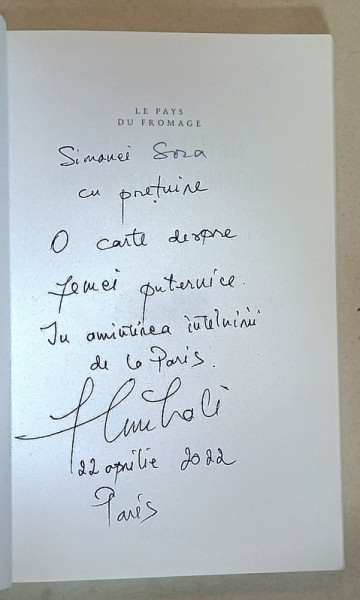 LE PAYS
DU FROMAGE
Simonei Sora
cu prețuire
O carte despre
femei puternice.
În amintirea întîlnirii
de la Paris.
22 aprilie 2022
Paris